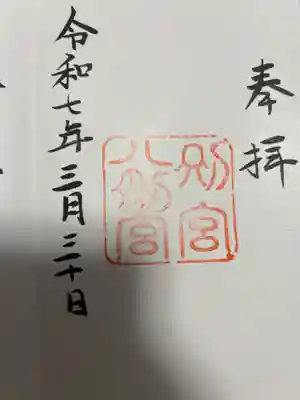 奉拝
別宮
八幡宮
令和七年三月三十日